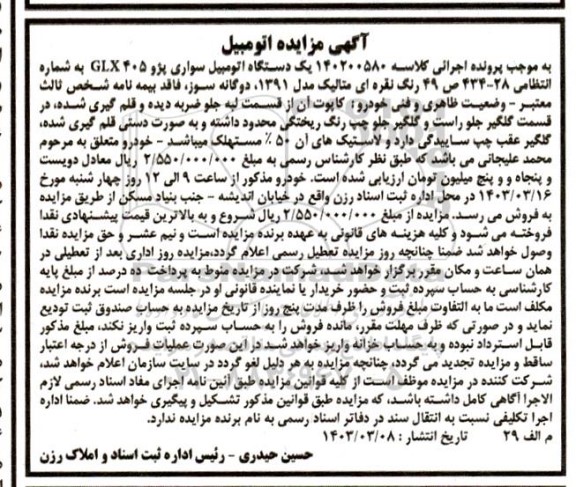 آگهی مزایده اتومبیل
به موجب پرونده اجرائی کلاسه ۱۴۰۲۰۰۵۸۰ یک دستگاه اتومبیل سواری پژو GLX ۴۰۵ به شماره
انتظامی ۲۸-۴۳۴ ص ۴۹ رنگ نقره ای متالیک مدل ۱۳۹۱، دوگانه سوز، فاقد بیمه نامه شخص ثالث
معتبر - وضعیت ظاهری و فنی خودرو: کاپوت آن از قسمت لبه جلو ضربه دیده و قلم گیری شده، در
قسمت گلگیر جلو راست و گلگیر جلو چپ رنگ ریختگی محدود داشته و به صورت دستی قلم گیری شده،
گلگیر عقب چپ ساییدگی دارد و لاستیک های آن ۵۰٪ مستهلک میباشد - خودرو متعلق به مرحوم
محمد علیجانی می باشد که طبق نظر کارشناس رسمی به مبلغ ۲/۵۵۰/۰۰۰/۰۰۰ ریال معادل دویست
و پنجاه و و پنج میلیون تومان ارزیابی شده است. خودرو مذکور از ساعت ۹ الی ۱۲ روز چهار شنبه مورخ
۱۴۰۳/۰۳/۱۶ در محل اداره ثبت اسناد رزن واقع در خیابان اندیشه - جنب بنیاد مسکن از طریق مزایده
به فروش می رسد. مزایده از مبلغ ۲/۵۵۰/۰۰۰/۰۰۰ ریال شروع و به بالاترین قیمت پیشنهادی نقدا
فروخته می شود و کلیه هزینه های قانونی بر عهده برنده مزایده است و نیم عشر و حق مزایده نقدا
وصول خواهد شد ضمنا چنانچه روز مزایده تعطیل رسمی اعلام گردد،مزایده روز اداری بعد از تعطیلی در
همان ساعت و مکان مقرر برگزار خواهد شد. شرکت در مزایده منوط به پرداخت ده درصد از مبلغ پایه
کارشناسی به حساب سپرده ثبت و حضور خریدار یا نماینده قانونی او در جلسه مزایده است برنده مزایده
مکلف است ما به التفاوت مبلغ فروش را ظرف مدت پنج روز از تاریخ مزایده به حساب صندوق ثبت تودیع
نماید و در صورتی که ظرف مهلت مقرر، مانده فروش را به حساب سپرده ثبت واریز نکند، مبلغ مذکور
قابل استرداد نبوده و به حساب خزانه واریز خواهد شد در این صورت عملیات فروش از درجه اعتبار
ساقط و مزایده تجدید می گردد، چنانچه مزایده به هر دلیل لغو گردد در سایت سازمان اعلام خواهد شد،
شرکت کننده در مزایده موظف است از کلیه قوانین مزایده طبق آئین نامه اجرای مفاد اسناد رسمی لازم
الاجرا آگاهی کامل داشته باشد، که مزایده طبق قوانین مذکور تشکیل و پیگیری خواهد شد. ضمنا اداره
اجرا تکلیفی نسبت به انتقال سند در دفاتر اسناد رسمی به نام برنده مزایده ندارد.
م الف ۲۹ تاریخ انتشار : ۱۴۰۳/۰۳/۰۸
حسین حیدری - رئیس اداره ثبت اسناد و املاک رزن